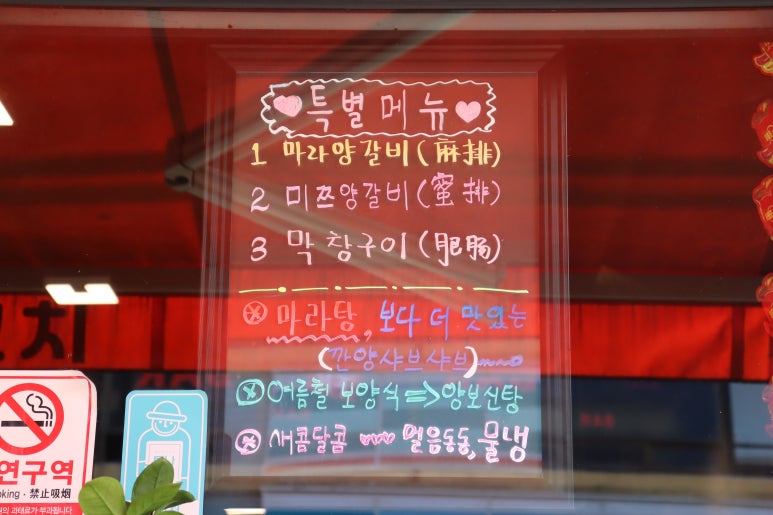 특별 메뉴
1 마라양갈비(麻排)
2 미쯔양갈비(蜜排)
3 막창구이(肥肠)
마라탕, 보다 더 맛있는
(깐양샤브샤브)
여름철 보양식 => 양보신탕
새콤달콤 얼음동동, 물냉
꼬치
연구역
oking · 禁止吸烟
과태료가 부과됩니다